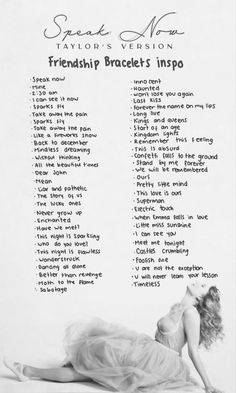 Speak Now
TAYLOR'S VERSION
Friendship Bracelets inspo
· Speak now
· Mine
· 2:30 am
· I can see it now
· Sparks fly
· Take away the pain
· Sparks fly
· Take away the pain
· Like a fireworks show
· Back to december
· Mindless dreaming
· Without thinking
· All the beautiful times
· Dear John
· Mean
· Liar and pathetic
· The story of us
· The lucky ones
· Never grow up
· Enchanted
· Have we met?
· This night is sparkling
· Who do you love?
· This night is flawless
· Wonderstruck
· Dancing all alone
· Better than revenge
· Moth to the flame
· Sabotage
· Innocent
· Haunted
· Won't lose you again
· Last kiss
· Forever the name on my lips
· Long live
· Kings and queens
· Start of an age
· Kingdom lights
· Remember this feeling
· This is absurd
· Confetti falls to the ground
· Stand by me forever
· We will be remembered
· Ours
· Pretty little mind
· This love is ours
· Superman
· Electric touch
· When Emma falls in love
· Little miss sunshine
· I can see you
· Meet me tonight
· Castles crumbling
· Foolish one
· U are not the exception
· U will never learn your lesson
· Timeless